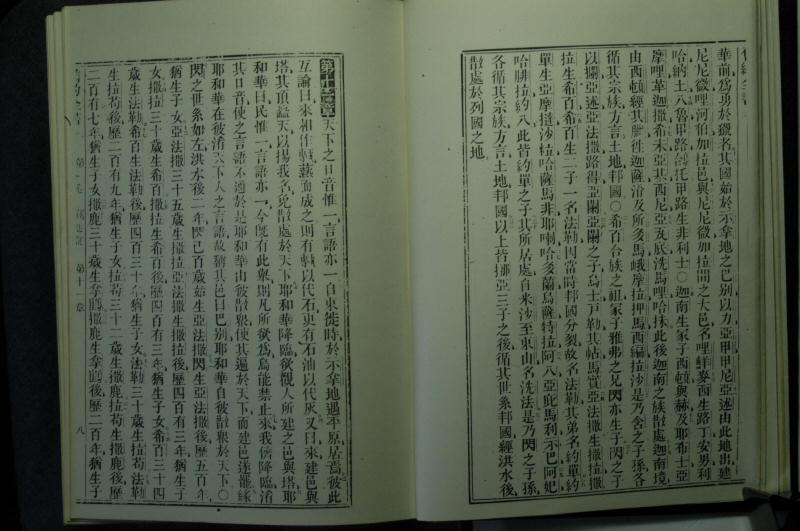 華前爲勇於獵名其國始於示拿地之巴別以力亞甲甲尼亞述由此地出建
尼尼微哩河伯加拉邑與尼尼微加拉間之大邑名哩鮮麥西生路丁安男利
哈納土八魯甲路 托甲路生非利士○迦南生冢子西頓與赫及耶布士亞
摩哩革迦撒希未亞其西尼亞瓦底洗馬哩哈抹此後迦南之族散處迦南境
由西頓經其 徃迦薩 及所多馬峨摩拉押馬西編拉沙是乃含之子孫各
循其宗族方言土地邦國○希百 族之祖冢子雅弗之兄閃亦生子閃之子
以攔亞述亞法撒路得亞闌亞闌之子烏士戶勒其帖馬質亞法撒生撒拉撒
拉生希百希百生二子一名法勒因當時邦國分裂故名法勒其弟名約單約
單生亞摩撻沙 哈薩馬非耶喇哈多蘭烏薩特拉阿八亞庇馬利示巴阿妃
哈腓拉約八此皆約單之子其所居處自米沙至東山名洗法是乃閃之子孫
各循其宗族方言土地邦國以上皆挪亞三子之後循其世系邦國經洪水後
散處於列國之地
第十一章天下之口音惟一言語亦一自東徙時於示拿地遇平原居焉彼此
互論曰來相作甎蓺而成之則有甎以代石更有石油以代灰又曰來建邑與
塔其頂詣天以揚我名免散處於天下耶和華降臨欲觀人所建之邑與塔耶
和華曰民惟一言語亦一今旣有此舉則凡所欲爲焉能禁止來我儕降臨淆
其口音使之言語不通於是耶和華由彼散衆使其遍於天下而建邑遂寢緣
耶和華在彼淆天下人之言語故稱其邑曰巴別耶和華自彼散衆於天下○
閃之世系如左洪水後二年閃已百歲始生亞法撒閃生亞法撒後歷五百年
猶生子女亞法撒三十五歲生撒拉亞法撒生撒拉後歷四百有三年猶生子
女撒拉三十歲生希百撒拉生希百後歷四百有三年猶生子女希百三十四
歲生法勒希百生法勒後歷四百三十年猶生子女法勒三十歲生拉苟法勒
生拉苟後歷二百有九年猶生子女拉苟三十二歲生撒鹿拉苟生撒鹿後歷
二百有七年猶生子女撒鹿三十歲生拿鶴撒鹿生拿鶴後歷二百年猶生子
第十一章
八